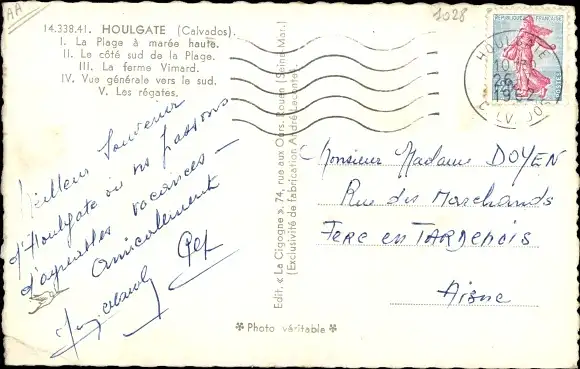 AA
1028
14.338.41. HOULGATE (Calvados).
I. La Plage à marée haute.
II. Le côté sud de la Plage.
III. La ferme Vimard.
IV. Vue générale vers le sud.
V. Les régates.
Meilleur Souvenir
d'Houlgate où ns passons
d'agréables vacances -
Amicalement
Edit. « La Cigogne », 74, rue aux Ours, Rouen (Seine-Mar.)
(Exclusivité de fabrication André Leconte)
REPUBLIQUE FRANÇAISE
POSTES
HOULGATE
26
CALVADOS
Monsieur Madame DOYEN
Rue des Marchands
FERE EN TARDENOIS
Aisne
✽ Photo véritable ✽